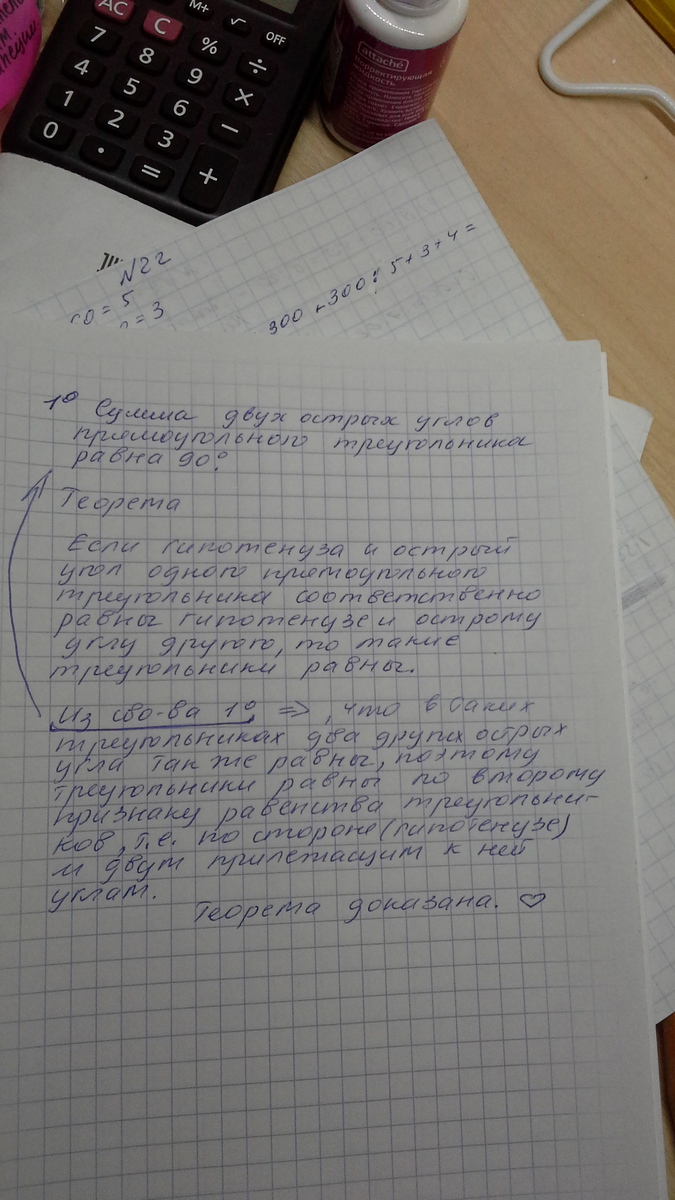 AC
C
M+
√
OFF
7
8
9
%
÷
4
5
6
×
1
2
3
−
0
·
=
+
attache
Корректирующая
жидкость
N22
= 5
= 3
300 + 300 : 5 + 3 + 4 =
1° Сумма двух острых углов
прямоугольного треугольника
равна 90°
Теорема
Если гипотенуза и острый
угол одного прямоугольного
треугольника соответственно
равны гипотенузе и острому
углу другого, то такие
треугольники равны.
Из сво-ва 1° => , что в таких
треугольниках два других острых
угла так же равны, поэтому
треугольники равны по второму
признаку равенства треугольни-
ков, т.е. по стороне (гипотенузе)
и двум прилежащим к ней
углам.
Теорема доказана. ♡